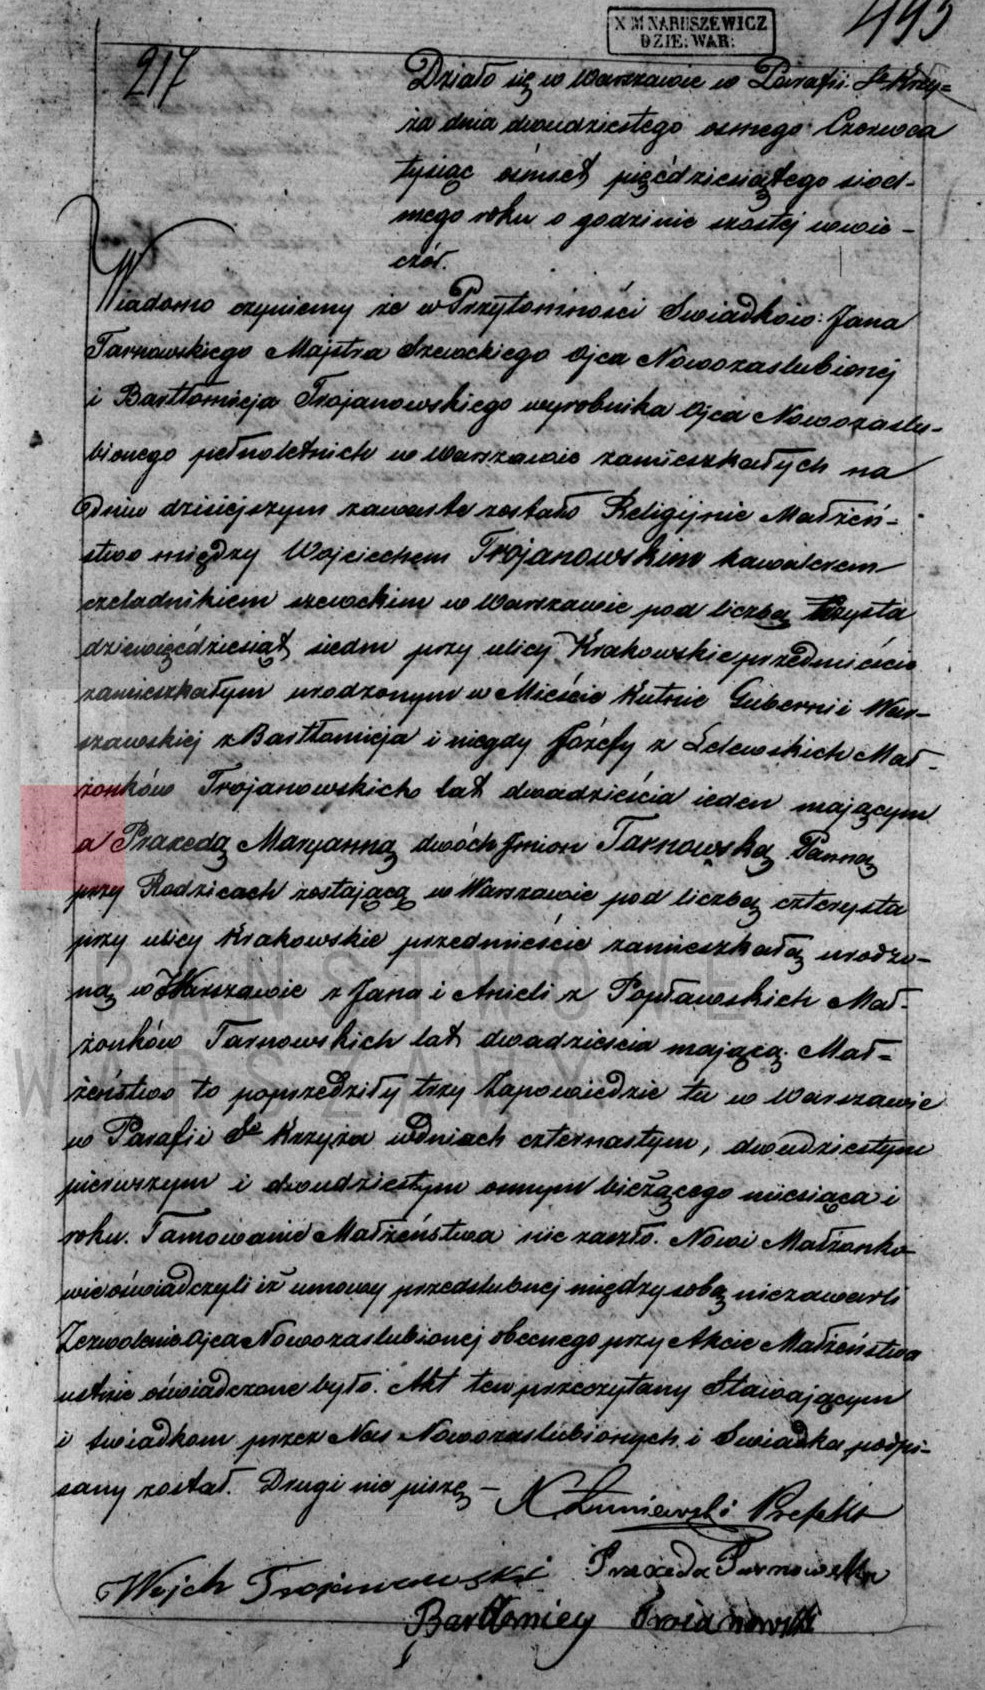 X M NARUSZEWICZ
DZIE: WAR:
493
217
Działo się w Warszawie w Parafii Sº Krzy=
ża dnia dwudziestego osmego Czerwca
tysiąc ośmset pięćdziesiątego siod-
mego roku o godzinie szostej wwie-
czór.
Wiadomo czyniemy że w Przytomności Swiadków: Jana
Tarnowskiego Majstra Szewckiego Ojca Nowozaslubionej
i Bartłomieja Trojanowskiego wyrobnika Ojca Nowozaslu-
bionego pełnoletnich w Warszawie zamieszkałych na
Dniu dzisiejszym zawarte zostało Religijnie Małżeń-
stwo między Wojciechem Trojanowskim kawalerem
czeladnikiem szewckim w Warszawie pod liczbą trzysta
dziewięćdziesiąt siedm przy ulicy Krakowskie przedmieście
zamieszkałym urodzonym w Mieście Kutnie Gubernii War-
szawskiej z Bartłomieja i niegdy Józefy z Lelewskich Mał-
żonków Trojanowskich lat dwadzieścia ieden mającym
a Praxedą Maryanną dwóch Jmion Tarnowską Panną
przy Rodzicach zostającą w Warszawie pod liczbą czterysta
przy ulicy Krakowskie przedmieście zamieszkałą urodzo-
ną w Warszawie z Jana i Anieli z Popławskich Mał-
żonków Tarnowskich lat dwadzieścia mającą. Mał-
żeństwo to poprzedziły trzy Zapowiedzie tu w Warszawie
w Parafii Sº Krzyża wdniach czternastym, dwudziestym
pierwszym i dwudziestym osmym bieżącego miesiąca i
roku. Tamowanie Małżeństwa nie zaszło. Nowi Małżonko
wie oświadczyli iż umowy przedslubnej między sobą niezawarli
Zezwolenie Ojca Nowozaslubionej obecnego przy Akcie Małżeństwa
ustnie oświadczone było. Akt ten przeczytany Stawającym
i swiadkom przez Nas Nowozaslubionych i Swiadka podpi-
sany został. Drugi nie piszą – Prefekt
Wojch Trojanowski Praxeda Tarnowska
Bartłomiey Troianowski
PAŃSTWOWE
WARSZAWY